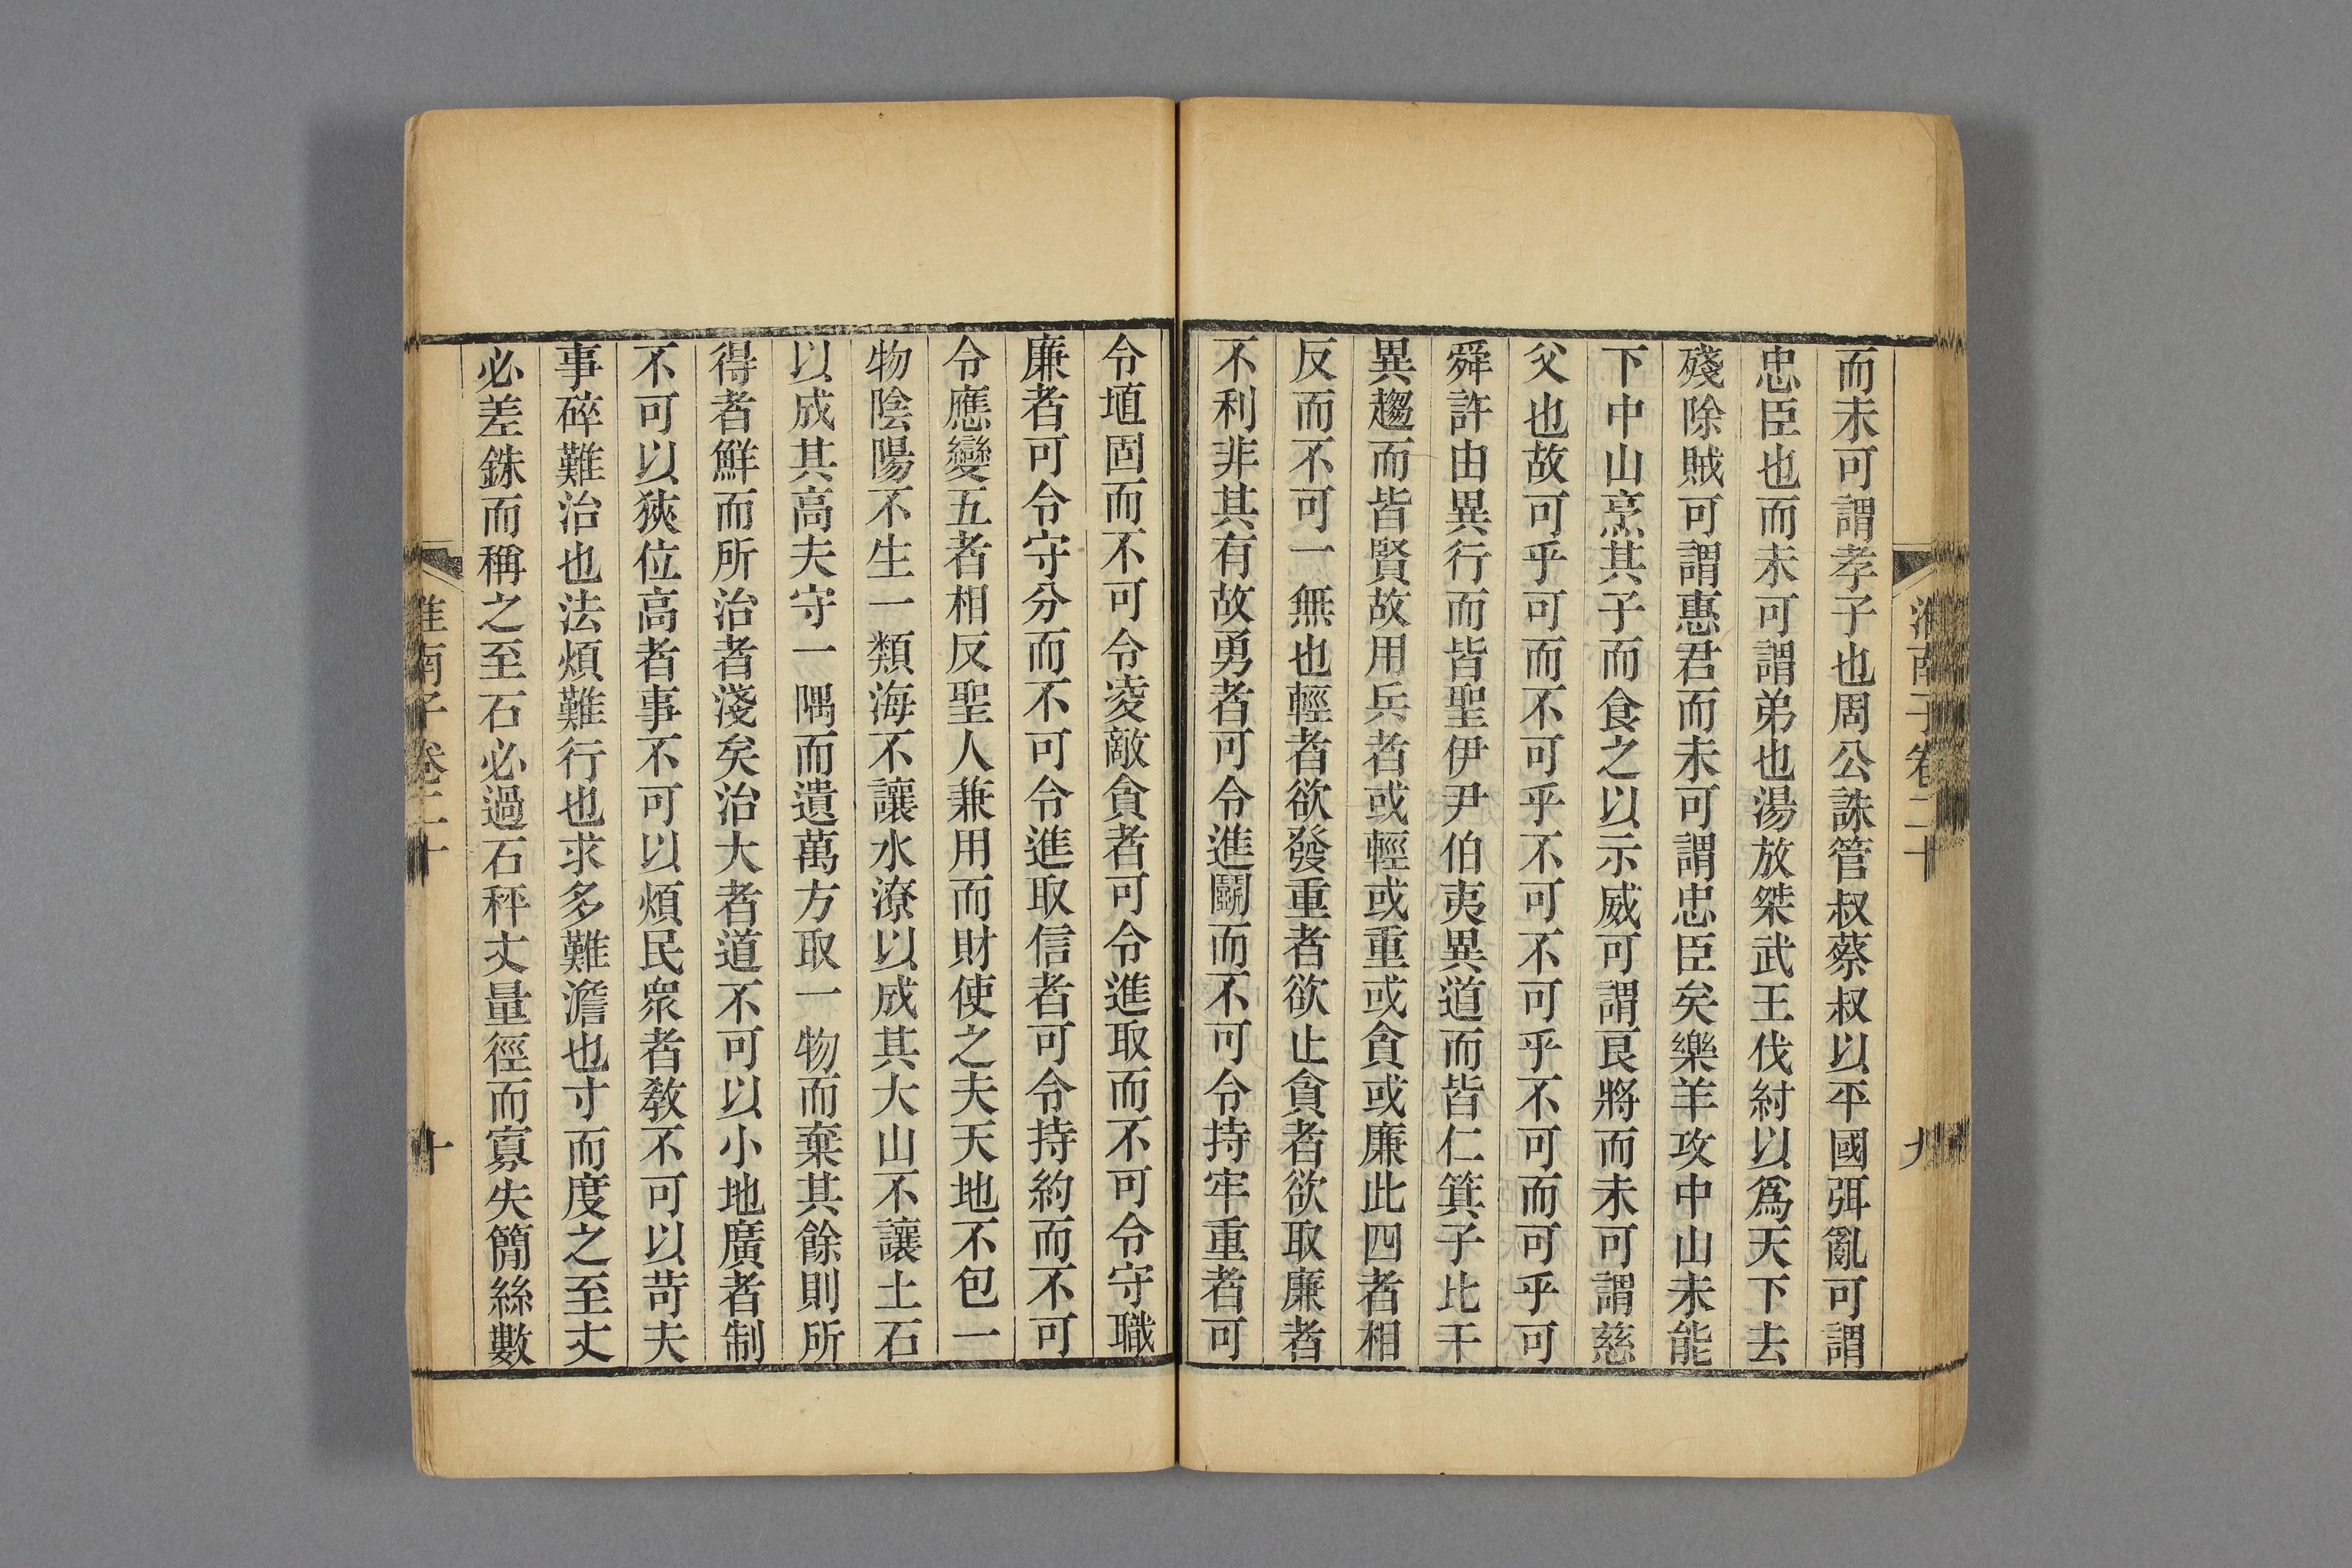 淮南子卷二十
九
而未可謂孝子也周公誅管叔蔡叔以平國弭亂可謂
忠臣也而未可謂弟也湯放桀武王伐紂以爲天下去
殘除賊可謂惠君而未可謂忠臣矣樂羊攻中山未能
下中山烹其子而食之以示威可謂良將而未可謂慈
父也故可乎可而不可乎不可不可乎不可而可乎可
舜許由異行而皆聖伊尹伯夷異道而皆仁箕子比干
異趨而皆賢故用兵者或輕或重或貪或廉此四者相
反而不可一無也輕者欲發重者欲止貪者欲取廉者
不利非其有故勇者可令進鬬而不可令持牢重者可
令埴固而不可令凌敵貪者可令進取而不可令守職
廉者可令守分而不可令進取信者可令持約而不可
令應變五者相反聖人兼用而財使之夫天地不包一
物陰陽不生一類海不讓水潦以成其大山不讓土石
以成其高夫守一隅而遺萬方取一物而棄其餘則所
得者鮮而所治者淺矣治大者道不可以小地廣者制
不可以狹位高者事不可以煩民眾者教不可以苛夫
事碎難治也法煩難行也求多難澹也寸而度之至丈
必差銖而稱之至石必過石秤丈量徑而寡失簡絲數
淮南子卷二十
十